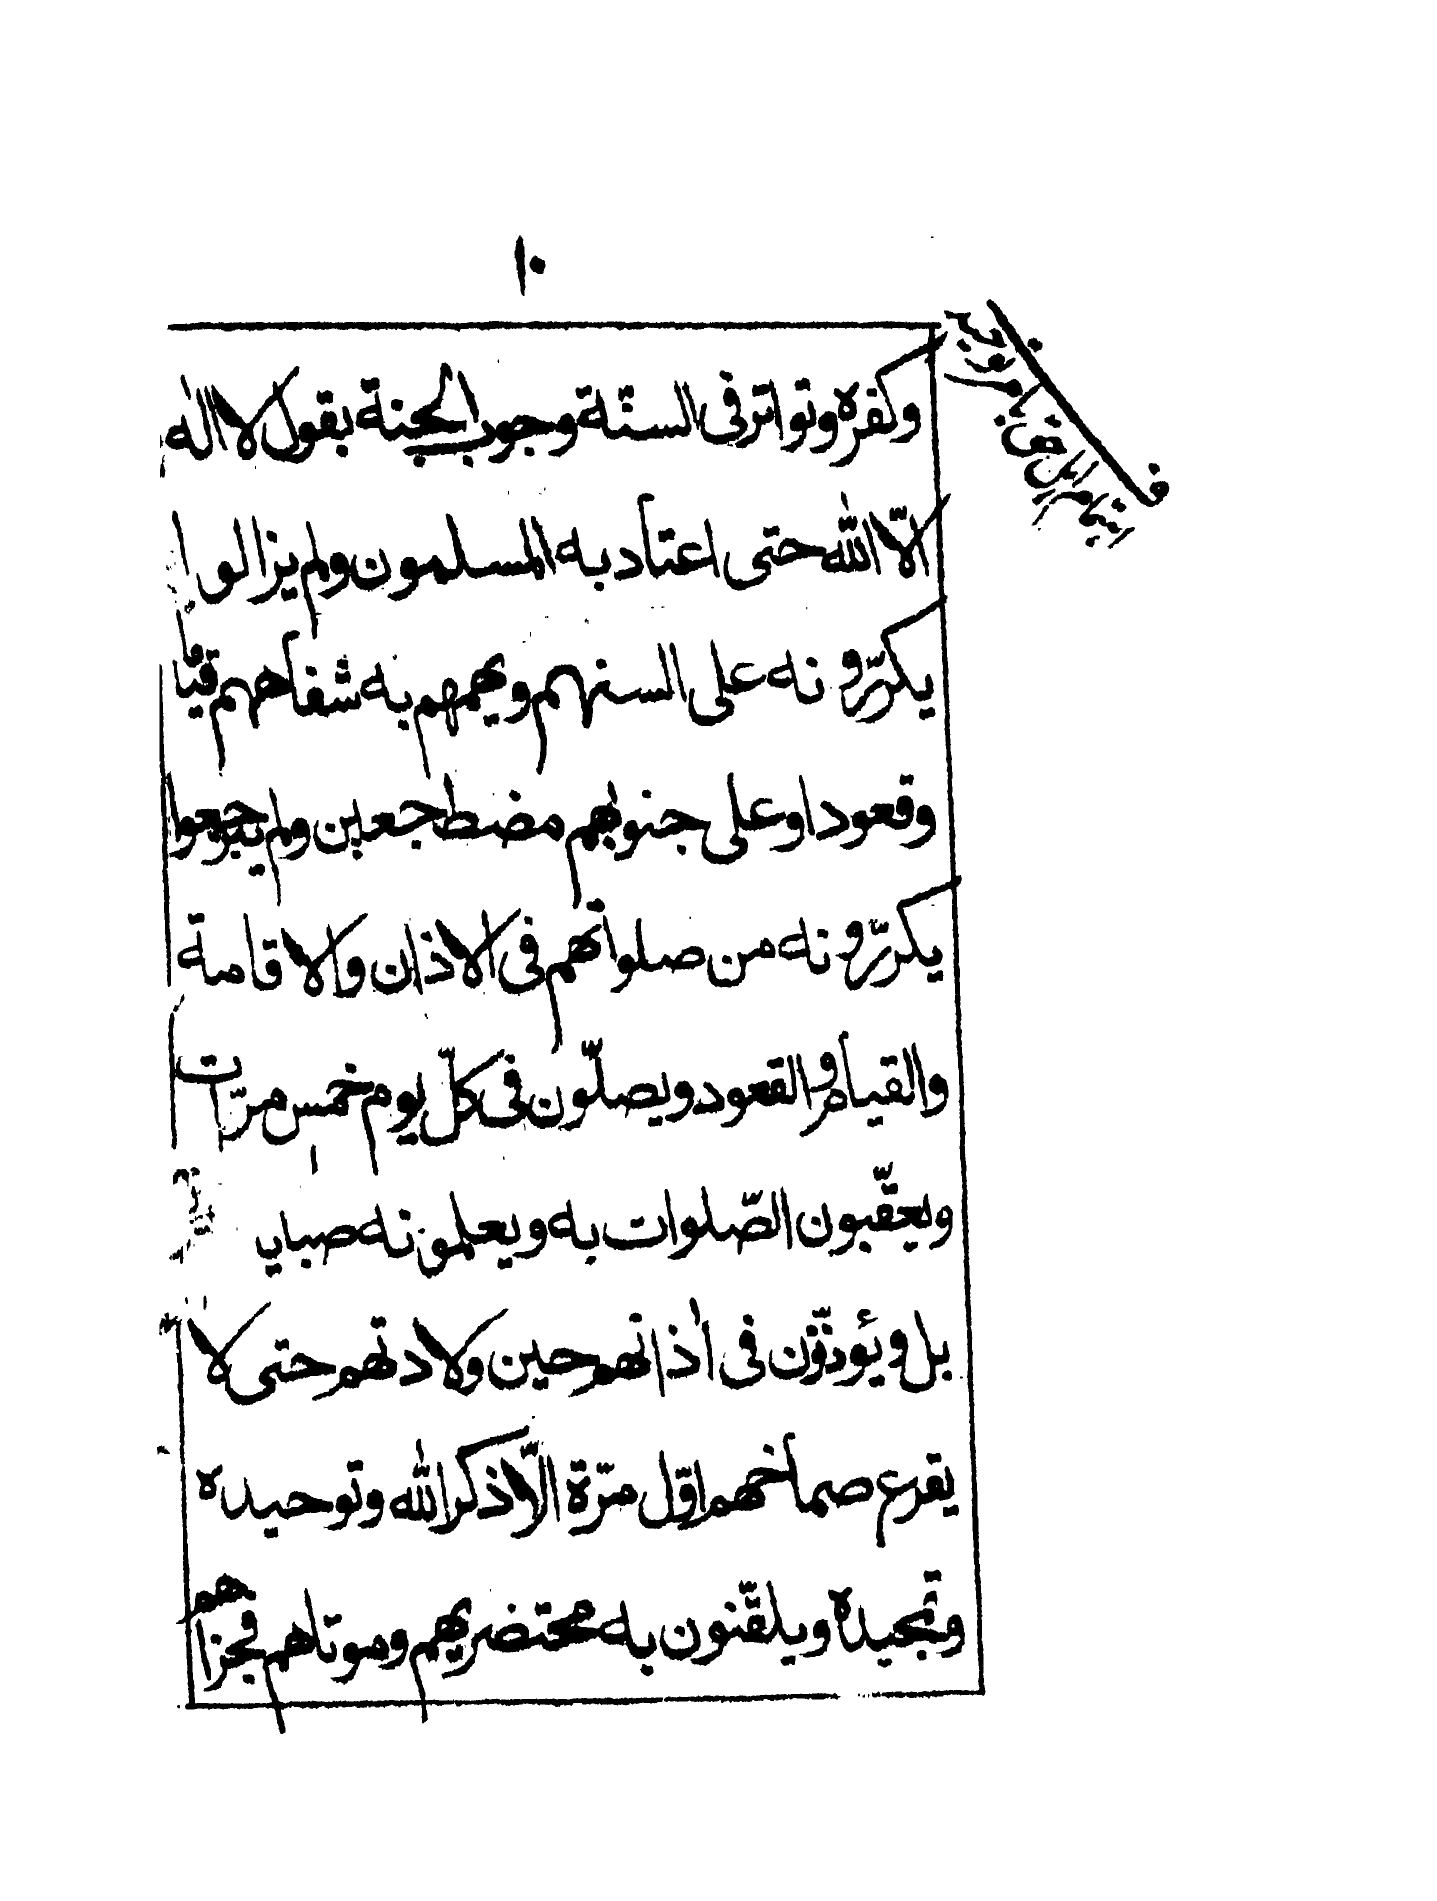 ١٠
وكفره وتواتر فى السنّة وجوب الجنة بقول لا اله
الّا الله حتى اعتاد به المسلمون ولم يزالوا
يكرّرونه على السنتهم ويهمهم به شفاههم قياما
وقعودا وعلى جنوبهم مضطجعين ولم يبرجعوا
يكرّرونه من صلواتهم فى الاذان والاقامة
والقيام والقعود ويصلّون فى كلّ يوم خمس مرّات
ويعقّبون الصّلوات به ويعلمونه صباي
بل ويؤذّون فى اٰذانهم حين ولادتهم حتى لا
يقرع صماخهم اوّل مرّة الّا ذكر الله وتوحيده
وتمجيده ويلقّنون به محتضريهم وموتاهم فجزاهم